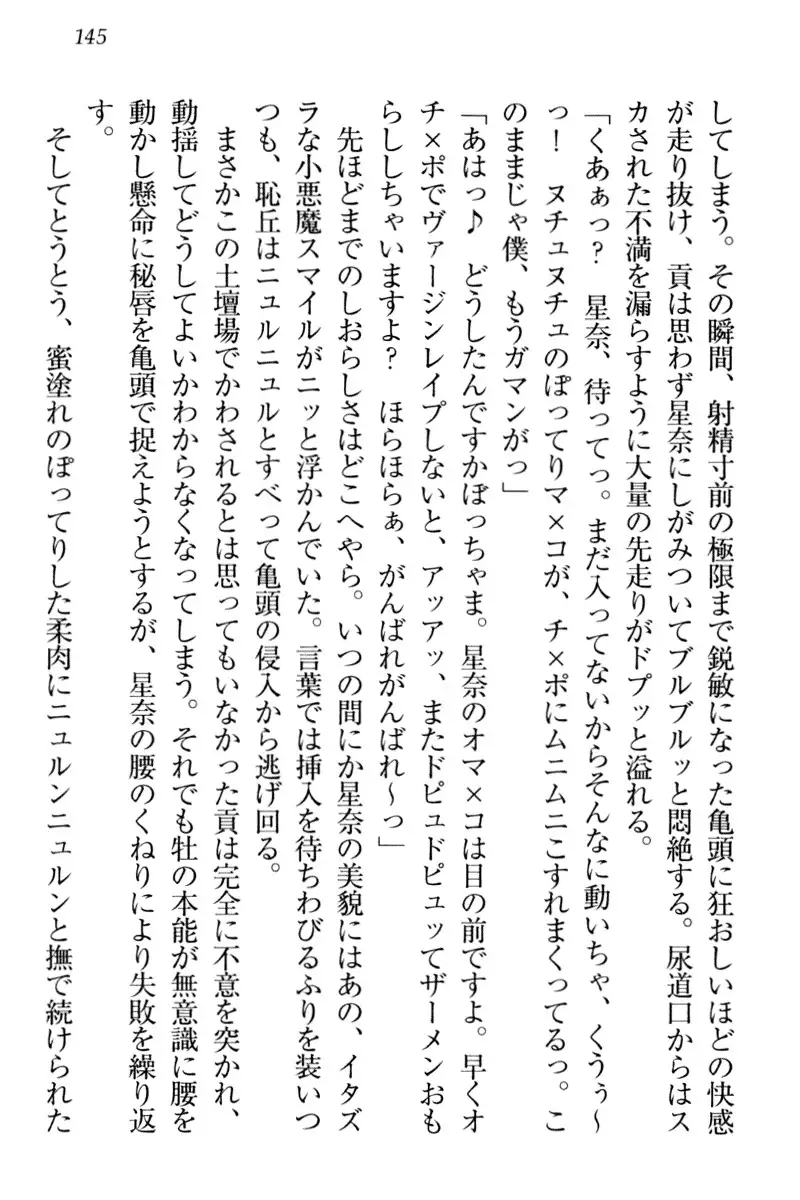 145
してしまう。その瞬間、射精寸前の極限まで鋭敏になった亀頭に狂おしいほどの快感
が走り抜け、貢は思わず星奈にしがみついてブルブルッと悶絶する。尿道口からはス
カされた不満を漏らすように大量の先走りがドプッと溢れる。
「くあぁっ？　星奈、待ってっ。まだ入ってないからそんなに動いちゃ、くうぅ～
っ！　ヌチュヌチュのぽってりマ×コが、チ×ポにムニムニこすれまくってるっ。こ
のままじゃ僕、もうガマンがっ」
「あはっ♪　どうしたんですかぼっちゃま。星奈のオマ×コは目の前ですよ。早くオ
チ×ポでヴァージンレイプしないと、アッアッ、またドピュドピュッてザーメンおも
らししちゃいますよ？　ほらほらぁ、がんばれがんばれ～っ」
先ほどまでのしおらしさはどこへやら。いつの間にか星奈の美貌にはあの、イタズ
ラな小悪魔スマイルがニッと浮かんでいた。言葉では挿入を待ちわびるふりを装いつ
つも、恥丘はニュルニュルとすべって亀頭の侵入から逃げ回る。
まさかこの土壇場でかわされるとは思ってもいなかった貢は完全に不意を突かれ、
動揺してどうしてよいかわからなくなってしまう。それでも牡の本能が無意識に腰を
動かし懸命に秘唇を亀頭で捉えようとするが、星奈の腰のくねりにより失敗を繰り返
す。
そしてとうとう、蜜塗れのぽってりした柔肉にニュルンニュルンと撫で続けられた